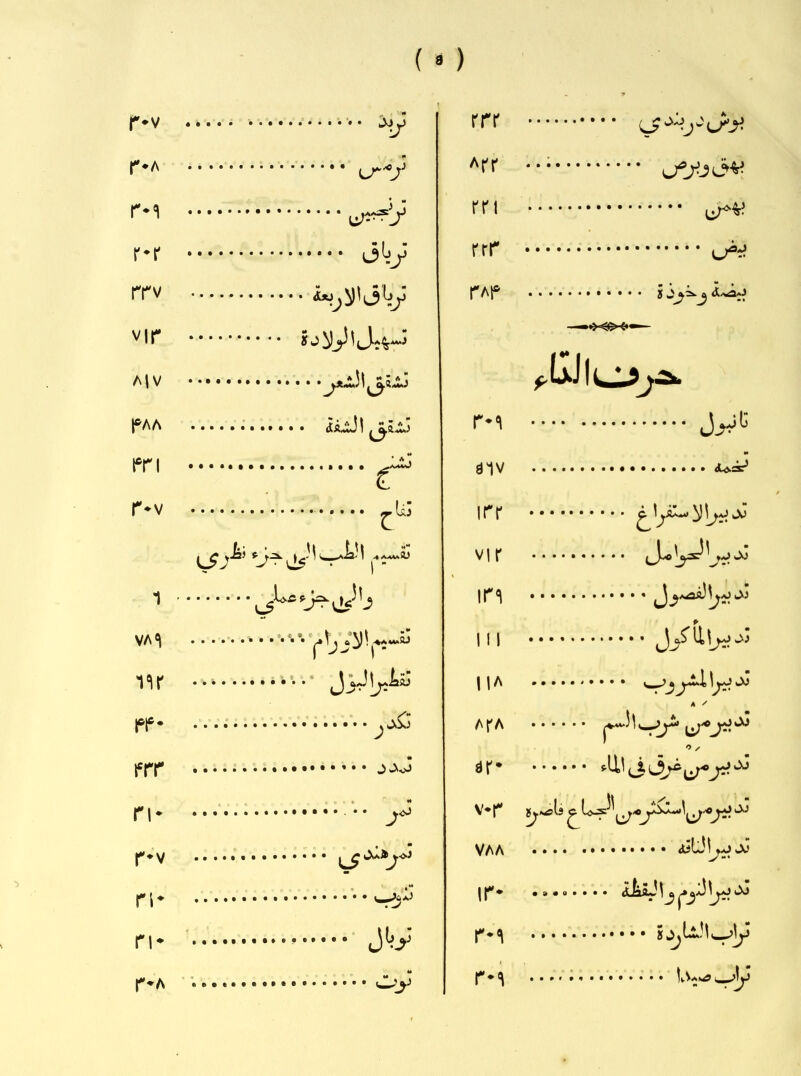 ( ٥ )
بوش دربندي ٢٣٢
بهق وبرص ٨٢٢
بهمن ٢٢١
بيض ٢٢٣
بيضة وخوذة ٣٨٤
حرف التاء
٣٠٩
تخمة ٥٦٧
تدبير الاستفراغ ١٢٢
تدبير الحوامل ٧١٢
تدبير الفصول ١٢٩
تدبير الماكول ١١١
تدبير المشروب ١١٨
تدبير من شرب السم ٨٢٨
تدبير من غرق في الماء ٥٢٠
تدبير من استكثر من الجماع فاضره ٧٠٣
تدبير الناقه ٧٨٨
تدبير النوم واليقظة ١٢٠
تراب ٣٠٩
تراب صيدا ٣٠٩
تربد ٣٠٧
ترمس ٣٠٨
ترنجبين ٣٠٩
ترياق ٣٠٢
ترياق الاربعة ٢٢٧
تسهيل الولادة ٧١٣
تشقق الشعر ٨١٧
تشقق الشفة ٤٨٨
تشنج ٤٢١
تفاح ٣٠٧
تقسيم الطب الي جزء نظري
والي جزء عملي ٦
تقسيم الاورام ٧٨٩
تقطير البول ٦٩٢
تكدر ٤٤٠
تمدد ٤٢٣
تمر ٣١٠
تمر هندي ٣٠٧
٣١٠
توبال ٣١٠
توت ٣٠٨